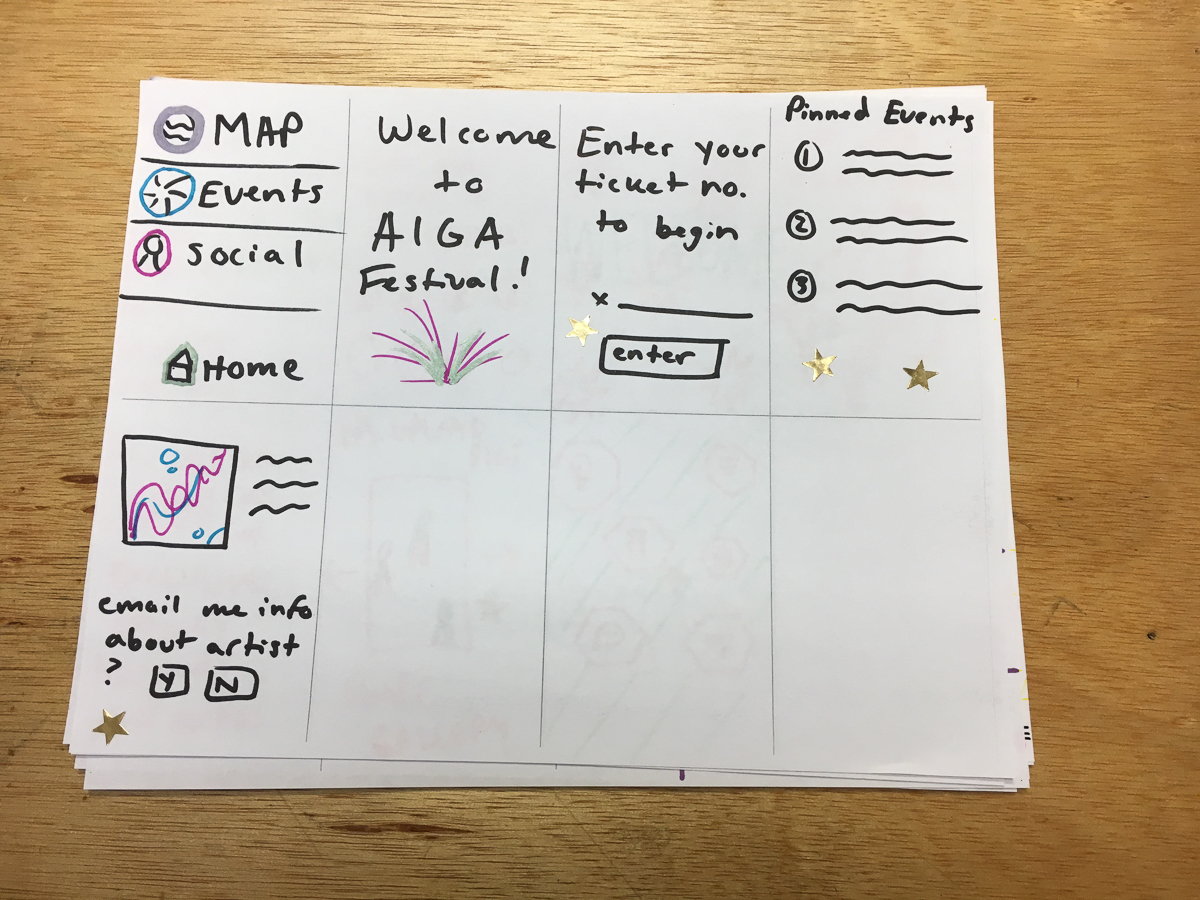 MAP
Events
Social
Home
Welcome
to
AIGA
Festival!
Enter your
ticket no.
to begin
x
enter
Pinned Events
1
2
3
email me info
about artist
?
Y N